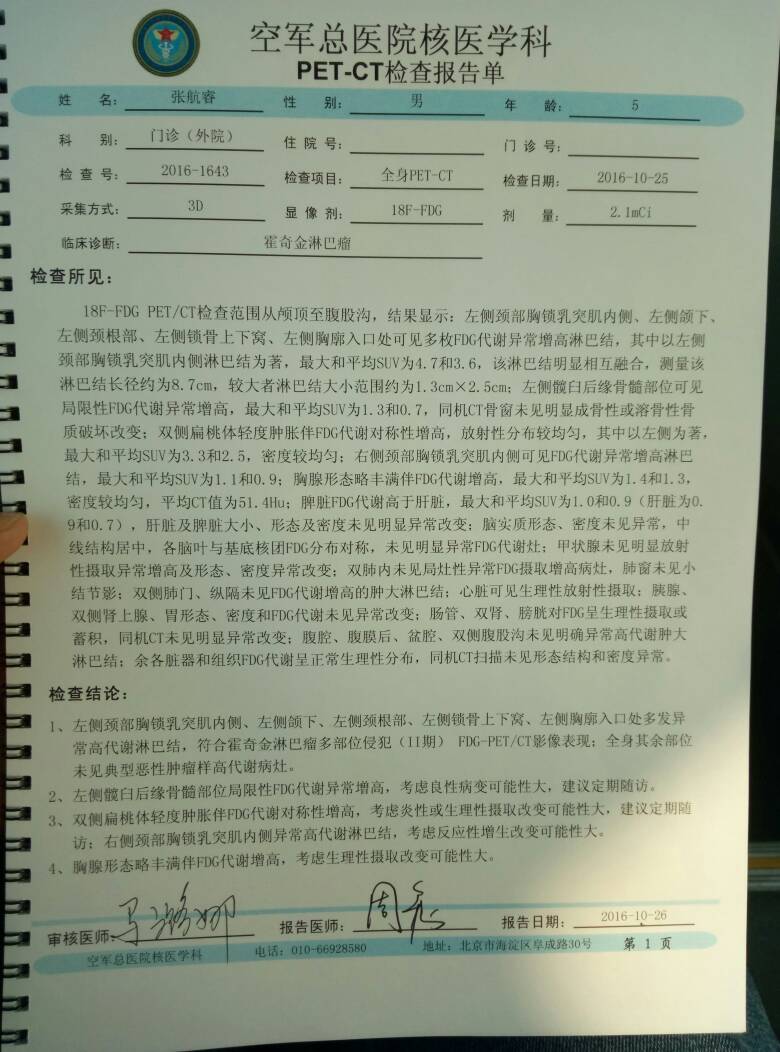 空军总医院核医学科
PET-CT检查报告单
姓 名: 张航睿 性 别: 男 年 龄: 5
科 别: 门诊（外院） 住 院 号: 门 诊 号:
检 查 号: 2016-1643 检查项目: 全身PET-CT 检查日期: 2016-10-25
采集方式: 3D 显 像 剂: 18F-FDG 剂 量: 2.1mCi
临床诊断: 霍奇金淋巴瘤
检查所见:
18F-FDG PET/CT检查范围从颅顶至腹股沟，结果显示：左侧颈部胸锁乳突肌内侧、左侧颌下、
左侧颈根部、左侧锁骨上下窝、左侧胸廓入口处可见多枚FDG代谢异常增高淋巴结，其中以左侧
颈部胸锁乳突肌内侧淋巴结为著，最大和平均SUV为4.7和3.6，该淋巴结明显相互融合，测量该
淋巴结长径约为8.7cm，较大者淋巴结大小范围约为1.3cm×2.5cm；左侧髋臼后缘骨髓部位可见
局限性FDG代谢异常增高，最大和平均SUV为1.3和0.7，同机CT骨窗未见明显成骨性或溶骨性骨
质破坏改变；双侧扁桃体轻度肿胀伴FDG代谢对称性增高，放射性分布较均匀，其中以左侧为著，
最大和平均SUV为3.3和2.5，密度较均匀；右侧颈部胸锁乳突肌内侧可见FDG代谢异常增高淋巴
结，最大和平均SUV为1.1和0.9；胸腺形态略丰满伴FDG代谢增高，最大和平均SUV为1.4和1.3，
密度较均匀，平均CT值为51.4Hu；脾脏FDG代谢高于肝脏，最大和平均SUV为1.0和0.9（肝脏为0.
9和0.7），肝脏及脾脏大小、形态及密度未见明显异常改变；脑实质形态、密度未见异常，中
线结构居中，各脑叶与基底核团FDG分布对称，未见明显异常FDG代谢灶；甲状腺未见明显放射
性摄取异常增高及形态、密度异常改变；双肺内未见局灶性异常FDG摄取增高病灶，肺窗未见小
结节影；双侧肺门、纵隔未见FDG代谢增高的肿大淋巴结；心脏可见生理性放射性摄取；胰腺、
双侧肾上腺、胃形态、密度和FDG代谢未见异常改变；肠管、双肾、膀胱对FDG呈生理性摄取或
蓄积，同机CT未见明显异常改变；腹腔、腹膜后、盆腔、双侧腹股沟未见明确异常高代谢肿大
淋巴结；余各脏器和组织FDG代谢呈正常生理性分布，同机CT扫描未见形态结构和密度异常。
检查结论:
1、左侧颈部胸锁乳突肌内侧、左侧颌下、左侧颈根部、左侧锁骨上下窝、左侧胸廓入口处多发异
常高代谢淋巴结，符合霍奇金淋巴瘤多部位侵犯（II期） FDG-PET/CT影像表现；全身其余部位
未见典型恶性肿瘤样高代谢病灶。
2、左侧髋臼后缘骨髓部位局限性FDG代谢异常增高，考虑良性病变可能性大，建议定期随访。
3、双侧扁桃体轻度肿胀伴FDG代谢对称性增高，考虑炎性或生理性摄取改变可能性大，建议定期随
访；右侧颈部胸锁乳突肌内侧异常高代谢淋巴结，考虑反应性增生改变可能性大。
4、胸腺形态略丰满伴FDG代谢增高，考虑生理性摄取改变可能性大。
审核医师: 报告医师: 报告日期: 2016-10-26
空军总医院核医学科 电话: 010-66928580 地址: 北京市海淀区阜成路30号 第 1 页